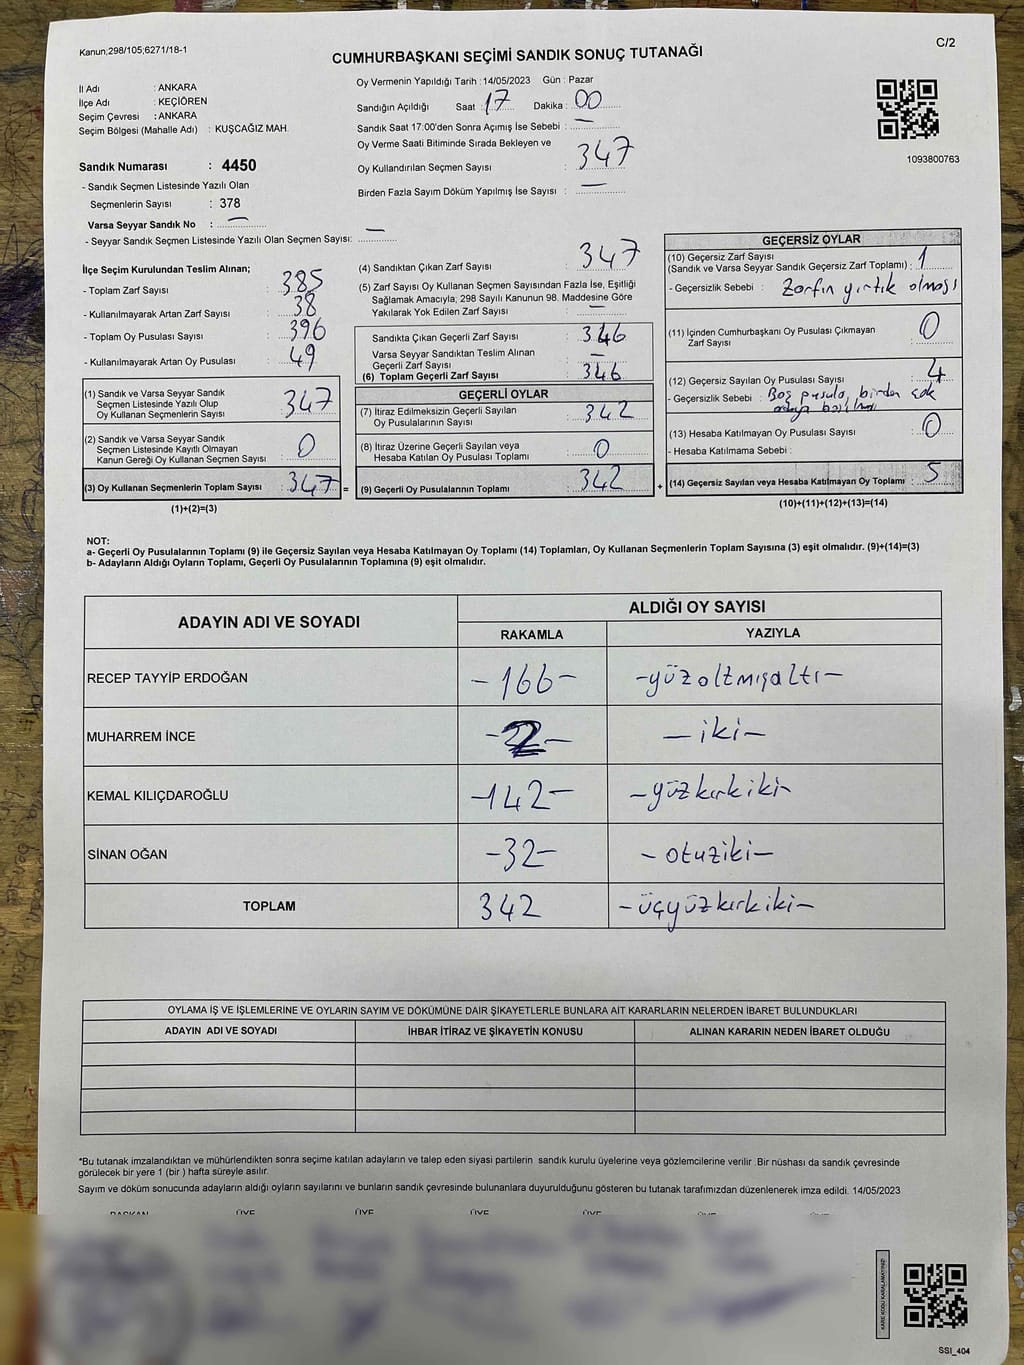 Kanun;298/105;6271/18-1
C/2
CUMHURBAŞKANI SEÇİMİ SANDIK SONUÇ TUTANAĞI
İl Adı : ANKARA
İlçe Adı : KEÇİÖREN
Seçim Çevresi : ANKARA
Seçim Bölgesi (Mahalle Adı) : KUŞCAĞIZ MAH.
Sandık Numarası : 4450
- Sandık Seçmen Listesinde Yazılı Olan
Seçmenlerin Sayısı : 378
Varsa Seyyar Sandık No : —
- Seyyar Sandık Seçmen Listesinde Yazılı Olan Seçmen Sayısı: —
Oy Vermenin Yapıldığı Tarih : 14/05/2023 Gün : Pazar
Sandığın Açıldığı Saat : 17 Dakika : 00
Sandık Saat 17:00'den Sonra Açımış İse Sebebi : —
Oy Verme Saati Bitiminde Sırada Bekleyen ve
Oy Kullandırılan Seçmen Sayısı : 347
Birden Fazla Sayım Döküm Yapılmış İse Sayısı : —
1093800763
İlçe Seçim Kurulundan Teslim Alınan;
- Toplam Zarf Sayısı : 385
- Kullanılmayarak Artan Zarf Sayısı : 38
- Toplam Oy Pusulası Sayısı : 396
- Kullanılmayarak Artan Oy Pusulası : 49
(1) Sandık ve Varsa Seyyar Sandık
Seçmen Listesinde Yazılı Olup
Oy Kullanan Seçmenlerin Sayısı : 347
(2) Sandık ve Varsa Seyyar Sandık
Seçmen Listesinde Kayıtlı Olmayan
Kanun Gereği Oy Kullanan Seçmen Sayısı : 0
(3) Oy Kullanan Seçmenlerin Toplam Sayısı : 347 =
(1)+(2)=(3)
(4) Sandıktan Çıkan Zarf Sayısı : 347
(5) Zarf Sayısı Oy Kullanan Seçmen Sayısından Fazla İse, Eşitliği
Sağlamak Amacıyla; 298 Sayılı Kanunun 98. Maddesine Göre
Yakılarak Yok Edilen Zarf Sayısı : —
Sandıkta Çıkan Geçerli Zarf Sayısı : 346
Varsa Seyyar Sandıktan Teslim Alınan
Geçerli Zarf Sayısı : —
(6) Toplam Geçerli Zarf Sayısı : 346
GEÇERLİ OYLAR
(7) İtiraz Edilmeksizin Geçerli Sayılan
Oy Pusulalarının Sayısı : 342
(8) İtiraz Üzerine Geçerli Sayılan veya
Hesaba Katılan Oy Pusulası Toplamı : 0
(9) Geçerli Oy Pusulalarının Toplamı : 342 +
GEÇERSİZ OYLAR
(10) Geçersiz Zarf Sayısı
(Sandık ve Varsa Seyyar Sandık Geçersiz Zarf Toplamı) : 1
- Geçersizlik Sebebi : Zarfın yırtık olması
(11) İçinden Cumhurbaşkanı Oy Pusulası Çıkmayan
Zarf Sayısı : 0
(12) Geçersiz Sayılan Oy Pusulası Sayısı : 4
- Geçersizlik Sebebi : Boş pusula, birden çok
(13) Hesaba Katılmayan Oy Pusulası Sayısı : 0
- Hesaba Katılmama Sebebi :
(14) Geçersiz Sayılan veya Hesaba Katılmayan Oy Toplamı : 5
(10)+(11)+(12)+(13)=(14)
NOT:
a- Geçerli Oy Pusulalarının Toplamı (9) ile Geçersiz Sayılan veya Hesaba Katılmayan Oy Toplamı (14) Toplamları, Oy Kullanan Seçmenlerin Toplam Sayısına (3) eşit olmalıdır. (9)+(14)=(3)
b- Adayların Aldığı Oyların Toplamı, Geçerli Oy Pusulalarının Toplamına (9) eşit olmalıdır.
ADAYIN ADI VE SOYADI
ALDIĞI OY SAYISI
RAKAMLA YAZIYLA
RECEP TAYYİP ERDOĞAN -166- -yüzaltmışaltı-
MUHARREM İNCE -2- -iki-
KEMAL KILIÇDAROĞLU -142- -yüzkırkiki-
SİNAN OĞAN -32- -otuziki-
TOPLAM 342 -üçyüzkırkiki-
OYLAMA İŞ VE İŞLEMLERİNE VE OYLARIN SAYIM VE DÖKÜMÜNE DAİR ŞİKAYETLERLE BUNLARA AİT KARARLARIN NELERDEN İBARET BULUNDUKLARI
ADAYIN ADI VE SOYADI İHBAR İTİRAZ VE ŞİKAYETİN KONUSU ALINAN KARARIN NEDEN İBARET OLDUĞU
*Bu tutanak imzalandıktan ve mühürlendikten sonra seçime katılan adayların ve talep eden siyasi partilerin sandık kurulu üyelerine veya gözlemcilerine verilir .Bir nüshası da sandık çevresinde
görülecek bir yere 1 (bir ) hafta süreyle asılır.
Sayım ve döküm sonucunda adayların aldığı oyların sayılarını ve bunların sandık çevresinde bulunanlara duyurulduğunu gösteren bu tutanak tarafımızdan düzenlenerek imza edildi. 14/05/2023
BAŞKAN ÜYE ÜYE ÜYE ÜYE
KARE KODU KARALAMAYINIZ!
SSI_404